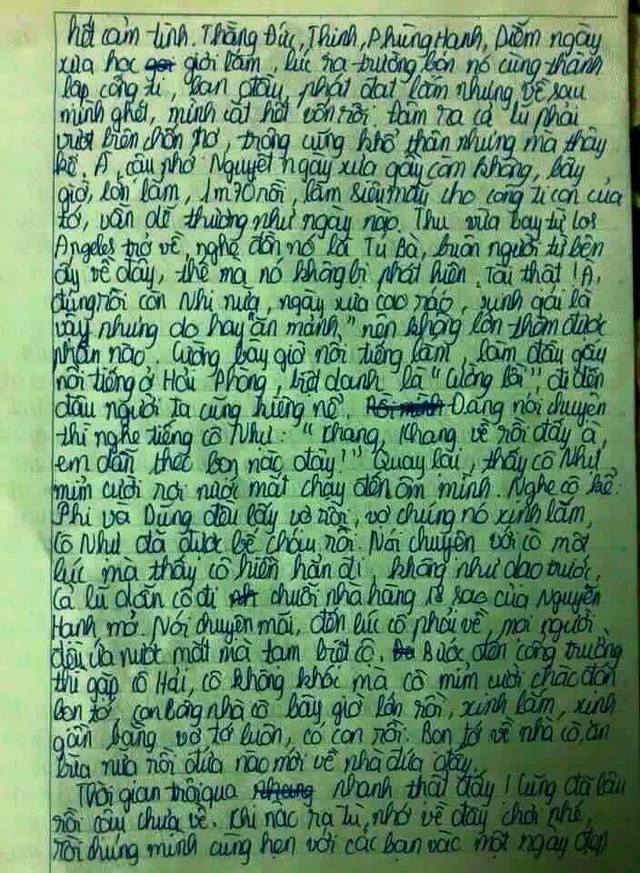 hết cảm tình. Thằng Đức, Thịnh, Phùng Hạnh, Diễm ngày
xưa học giỏi lắm, lúc ra trường bọn nó cùng thành
lập công ti, ban đầu phát đạt lắm nhưng về sau
mình ghét, mình cắt hết vốn rồi. Lâm ra cả lũ phải
vượt biên trốn nợ, trông cũng khổ thân nhưng mà thây
kệ. À, cậu nhớ Nguyệt ngày xưa gầy còm không, bây
giờ, lớn lắm, 1m70 rồi, làm siêu mẫu cho công ti con của
tớ, vẫn dễ thương như ngày nào. Thu vừa bay từ Los
Angeles trở về, nghe đồn nó là Tú Bà, buôn người từ bên
ấy về đây, thế mà nó không bị phát hiện. Tài thật! À,
đúng rồi còn Nhi nữa, ngày xưa cao ráo, xinh gái là
vậy nhưng do hay "ăn mảnh" nên không lớn thêm được
phân nào. Cường bây giờ nổi tiếng lắm, làm đầu gấu
nổi tiếng ở Hải Phòng, biệt danh là "Cường lồi", đi đến
đâu người ta cũng kiêng nể. Đang nói chuyện
thì nghe tiếng cô Như: "Khang, Khang về rồi đấy à,
em dẫn theo bọn nào đây!" Quay lại, thấy cô Như
mỉm cười rơi nước mắt chạy đến ôm mình. Nghe cô kể:
Phi và Dũng đều lấy vợ rồi, vợ chúng nó xinh lắm,
Cô Như đã được bế cháu rồi. Nói chuyện với cô một
lúc mà thấy cô hiền hẳn đi, không như dạo trước.
Cả lũ dẫn cô đi chuỗi nhà hàng sao của Nguyễn
Hạnh mở. Nói chuyện mãi, đến lúc cô phải về, mọi người
đều ứa nước mắt mà tạm biệt cô. Bước đến cổng trường
thì gặp cô Hải, cô không khóc mà cô mỉm cười chào đón
bọn tớ, con Bống nhà cô bây giờ lớn rồi, xinh lắm, xinh
gần bằng vợ tớ luôn, có con rồi. Bọn tớ về nhà cô, ăn
bữa nữa rồi đứa nào mới về nhà đứa đấy.
Thời gian trôi qua nhanh thật đấy! Cũng đã lâu
rồi cậu chưa về. Khi nào ra tù, nhớ về đây chơi nhé,
rồi chúng mình cùng hẹn với các bạn vào một ngày đẹp